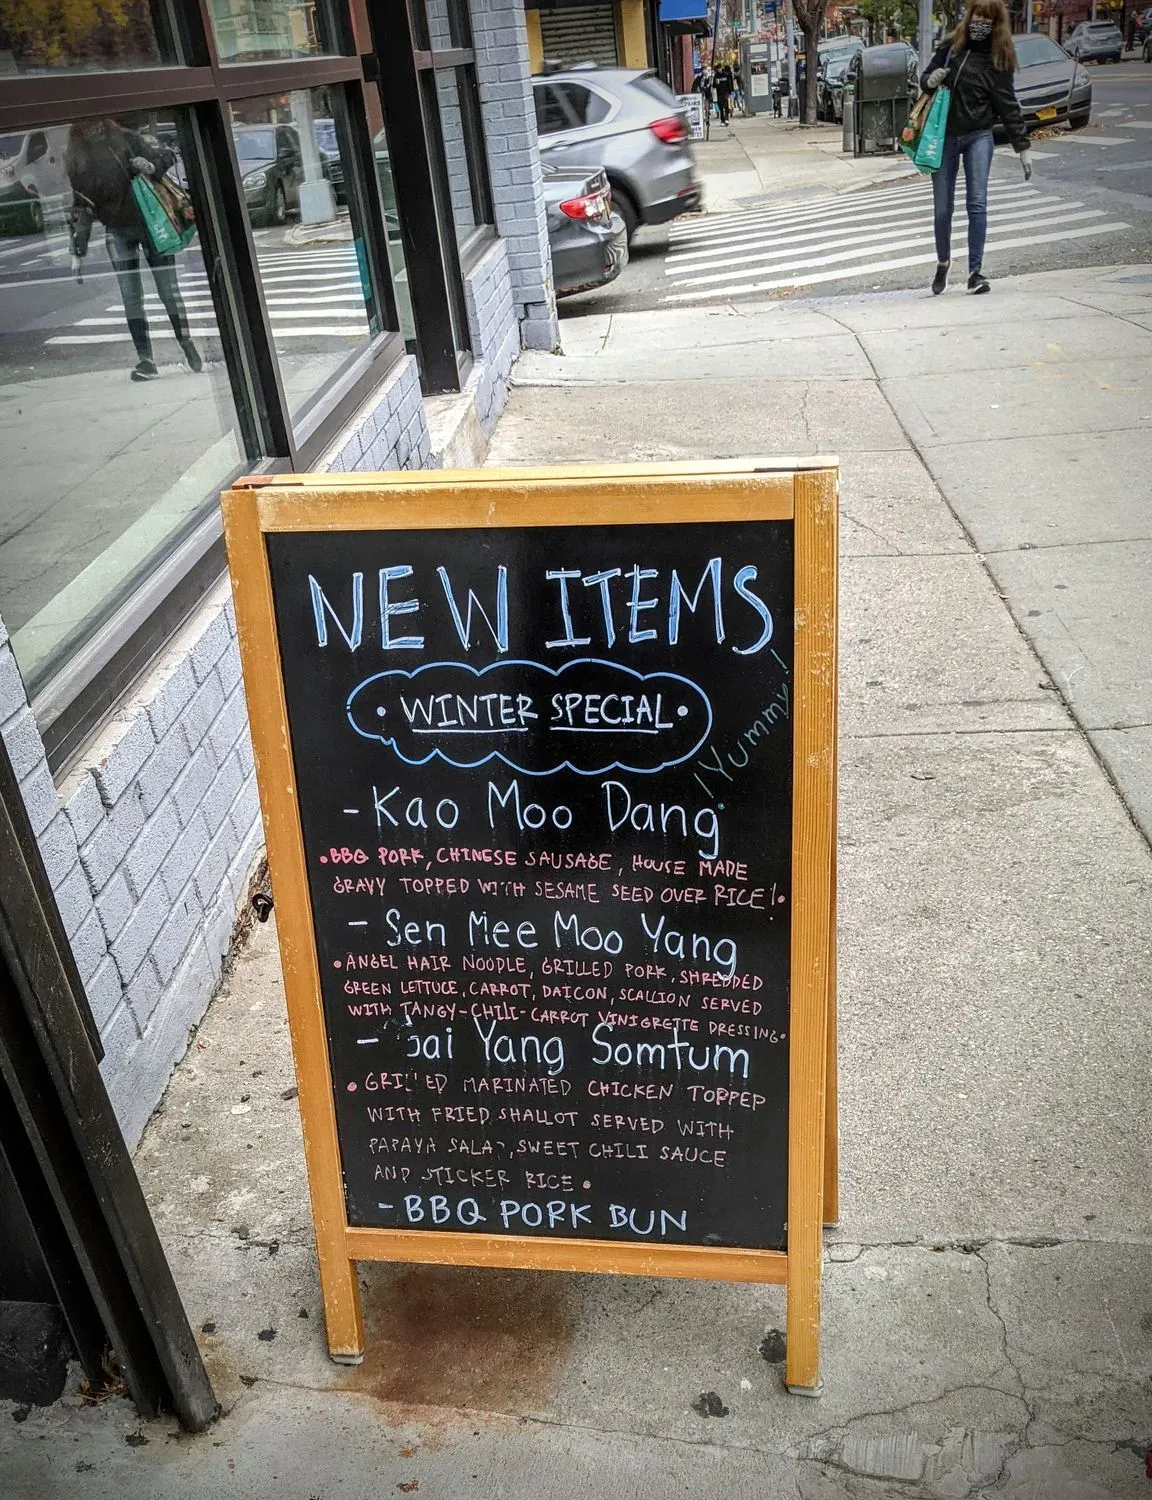 NEW ITEMS
• WINTER SPECIAL •
! Yummy !
- Kao Moo Dang
• BBQ PORK, CHINESE SAUSAGE, HOUSE MADE
GRAVY TOPPED WITH SESAME SEED OVER RICE! •
- Sen Mee Moo Yang
• ANGEL HAIR NOODLE, GRILLED PORK, SHREDDED
GREEN LETTUCE, CARROT, DAICON, SCALLION SERVED
WITH TANGY-CHILI-CARROT VINIGRETTE DRESSING •
- Gai Yang Somtum
• GRILLED MARINATED CHICKEN TOPPED
WITH FRIED SHALLOT SERVED WITH
PAPAYA SALAD, SWEET CHILI SAUCE
AND STICKER RICE •
- BBQ PORK BUN